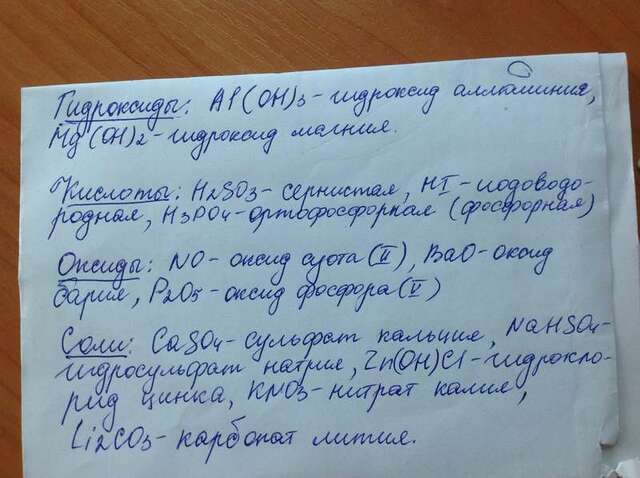 Гидроксиды: Al(OH)3 - гидроксид аллюминия,
Mg(OH)2 - гидроксид магния.
Кислоты: H2SO3 - сернистая, HI - иодоводо-
родная, H3PO4 - ортофосфорная (фосфорная)
Оксиды: NO - оксид азота (II), BaO - оксид
бария, P2O5 - оксид фосфора (V)
Соли: CaSO4 - сульфат кальция, NaHSO4 -
гидросульфат натрия, Zn(OH)Cl - гидрохло-
рид цинка, KNO3 - нитрат калия,
Li2CO3 - карбонат лития.